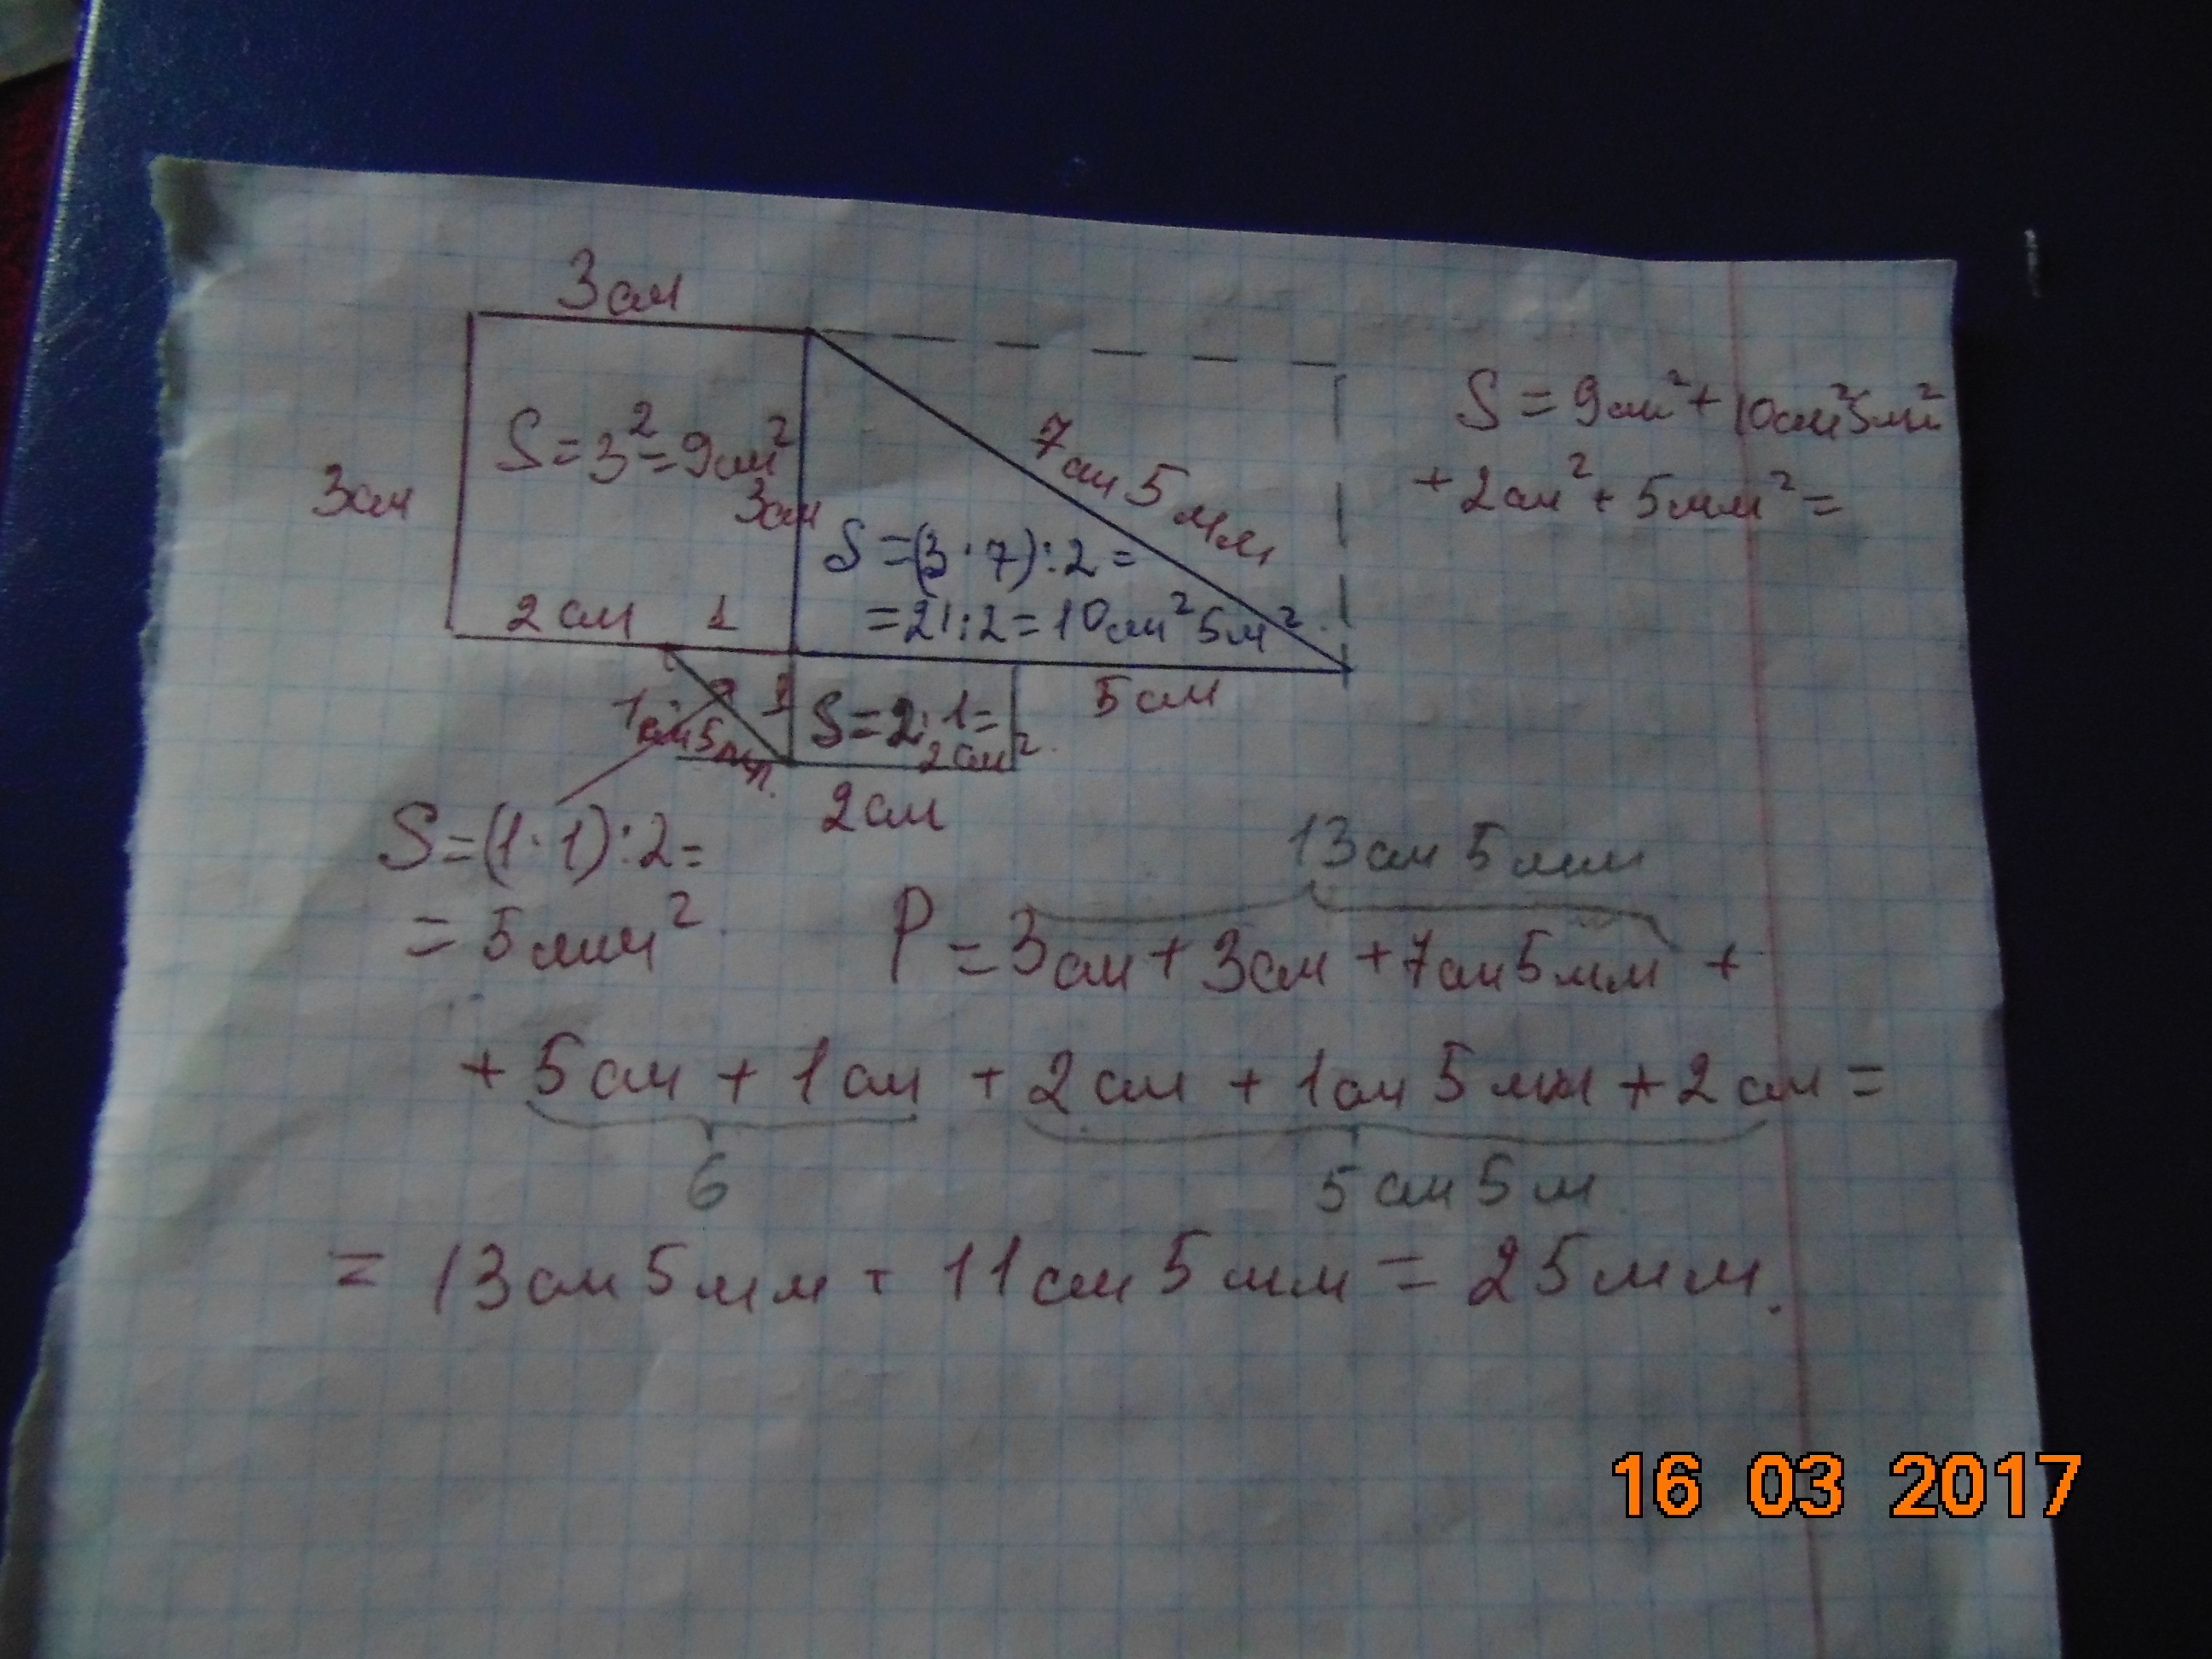 3см
S=3²=9см²
3см
3см
7см 5мм
S=(3·7):2=
=21:2=10см²5м².
2см 1
S = 9см²+10см²5мм²
+2см²+5мм²=
5см
1см5мм.
1
S=2·1=
2см².
2см
S=(1·1):2=
=5мм².
13см 5мм
P=3см+3см+7см5мм+
+5см+1см+2см+1см5мм+2см=
6
5см5м
=13см5мм+11см5мм=25мм.
16 03 2017